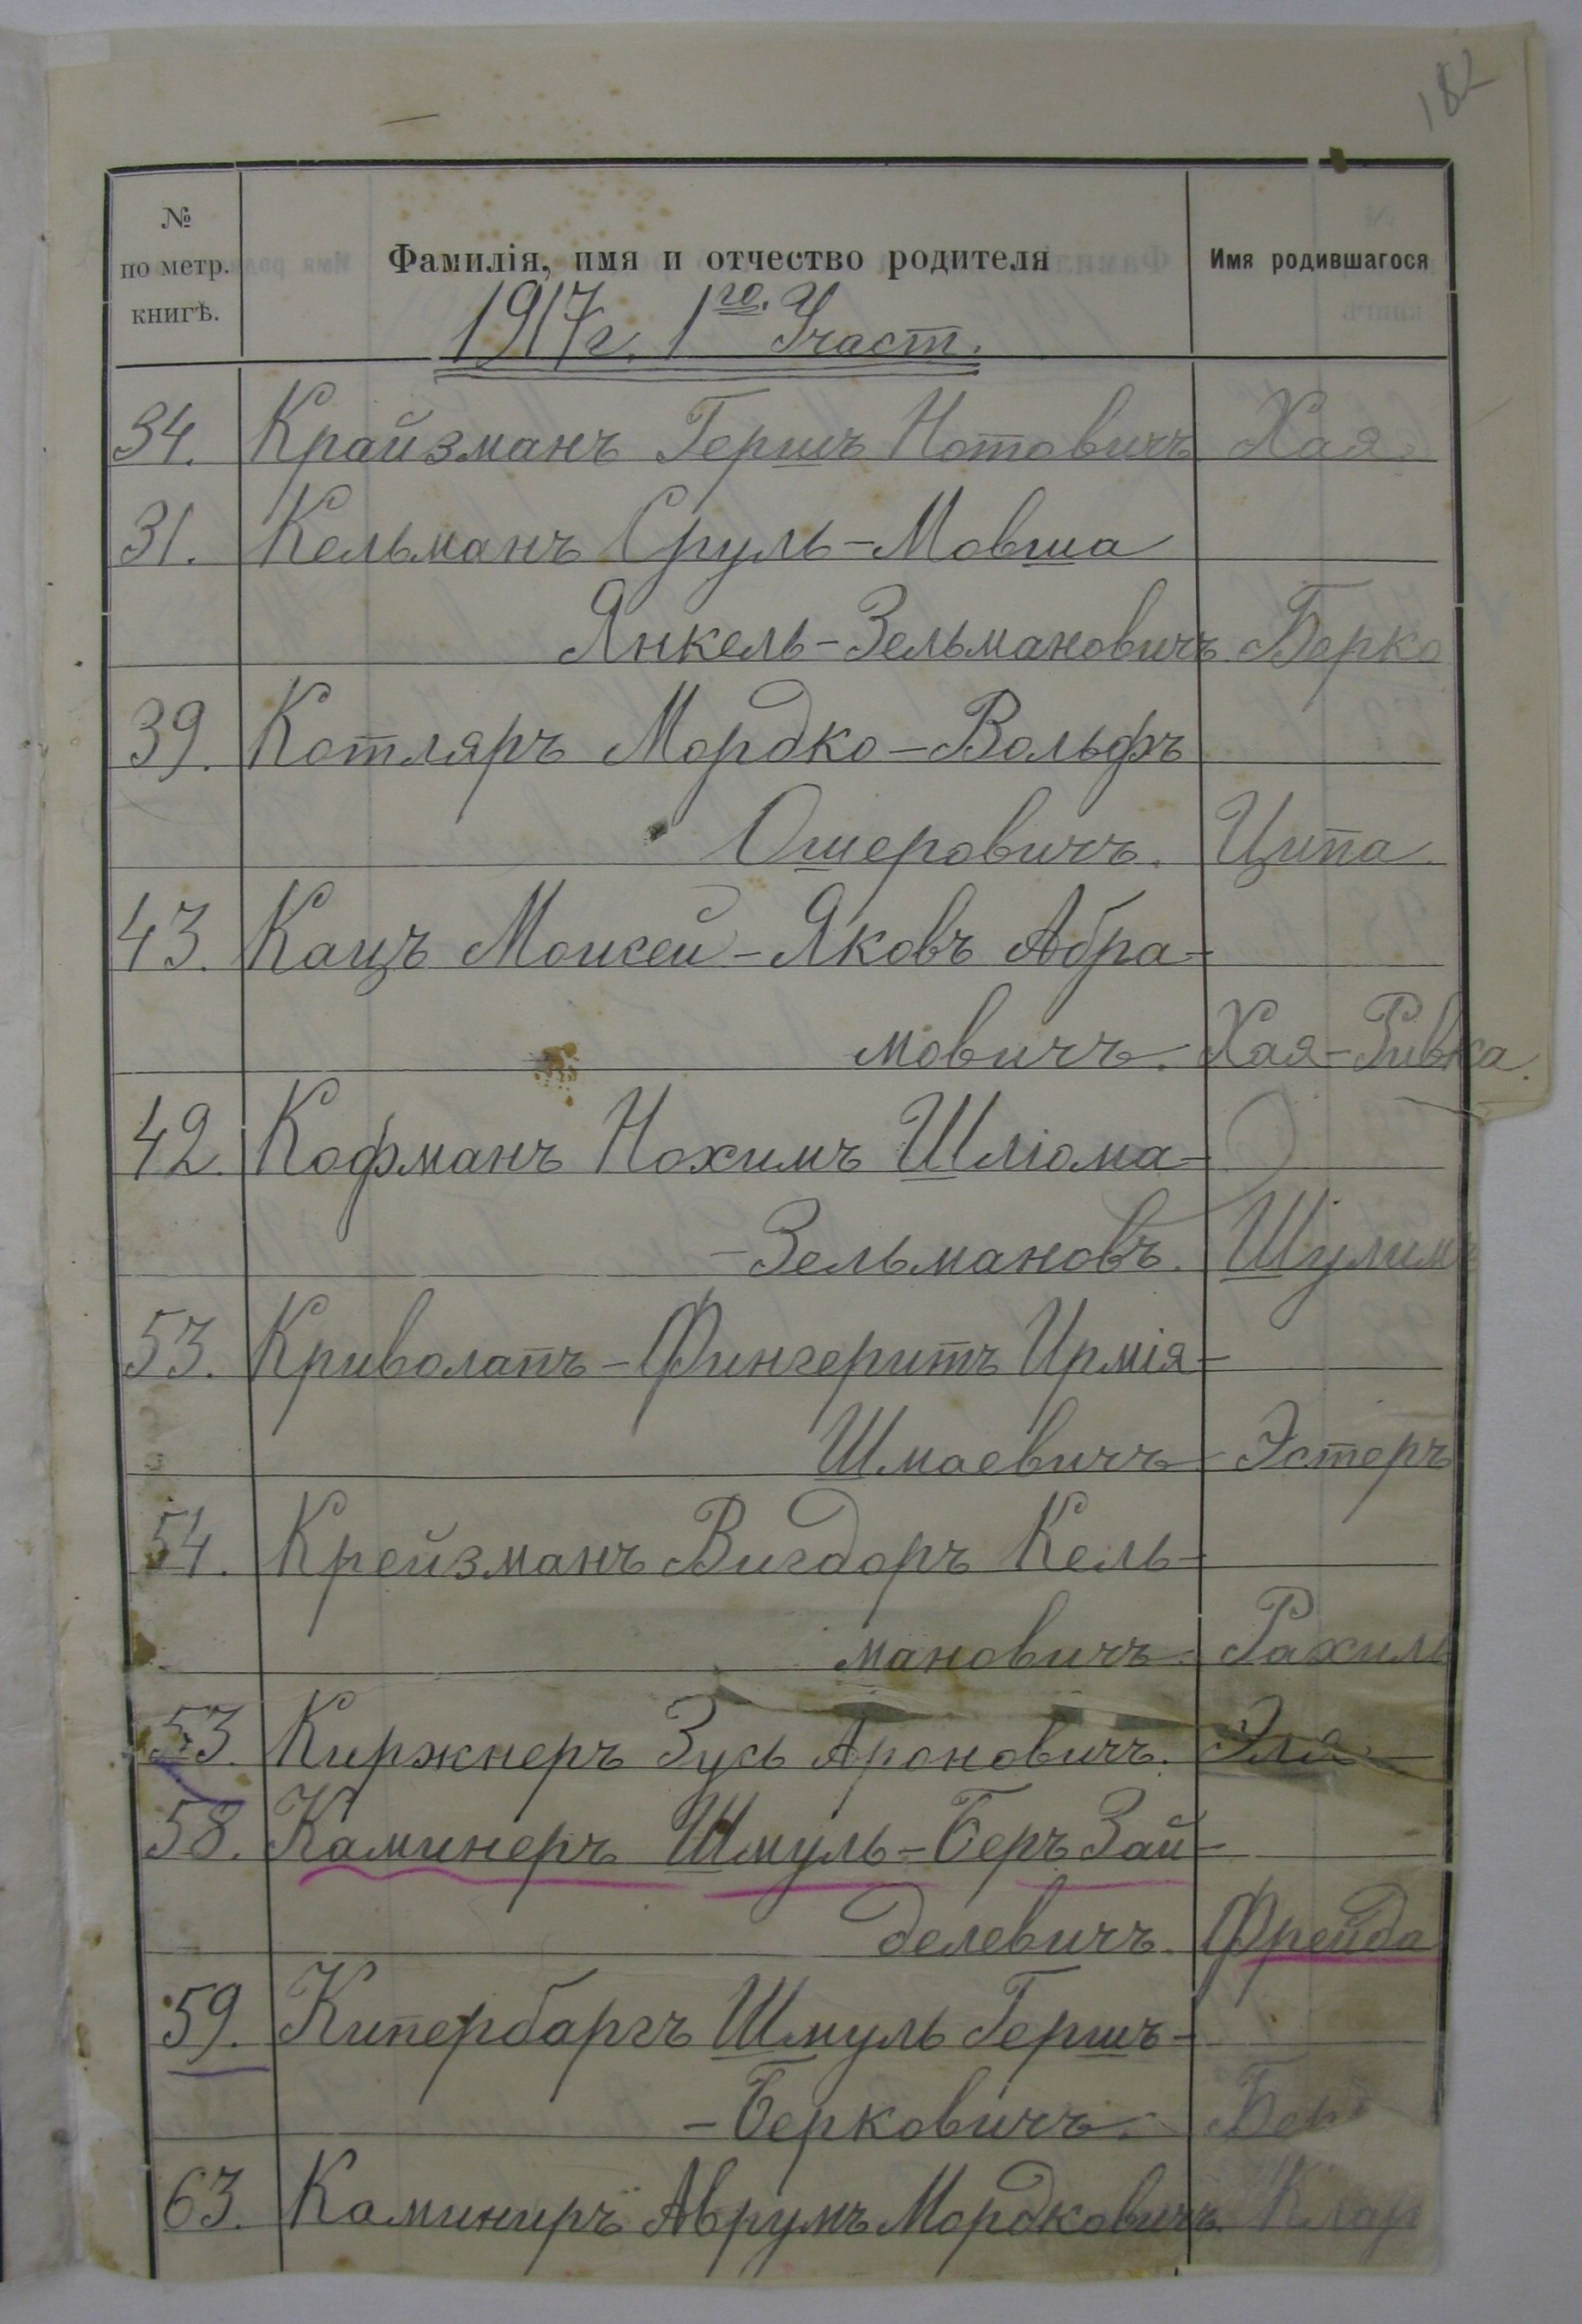 182
№ по метр. книгѣ. Фамилія, имя и отчество родителя Имя родившагося
1917 г. 1го. Участ.
34. Крайзманъ Гершъ Нотовичъ Хая.
31. Кельманъ Сруль-Мовша
Янкель-Зельмановичъ Берко
39. Котляръ Мордко-Вольфъ
Ошеровичъ. Ципа.
43. Кацъ Моисей-Яковъ Абра-
мовичъ. Хая-Ривка.
42. Кофманъ Нохимъ Шліома-
-Зельмановъ. Шулимъ
53. Криволапъ-Фингеритъ Ирмія-
Шмаевичъ Эстеръ
54. Крейзманъ Вигдоръ Кель-
мановичъ. Рахиль
53. Киржнеръ Зусь Ароновичъ. Эля
58. Каминеръ Шмуль-Беръ Зай-
делевичъ. Фрейда
59. Кипербаргъ Шмуль Гершъ-
-Берковичъ.
63. Каминиръ Аврумъ Мордковичъ.